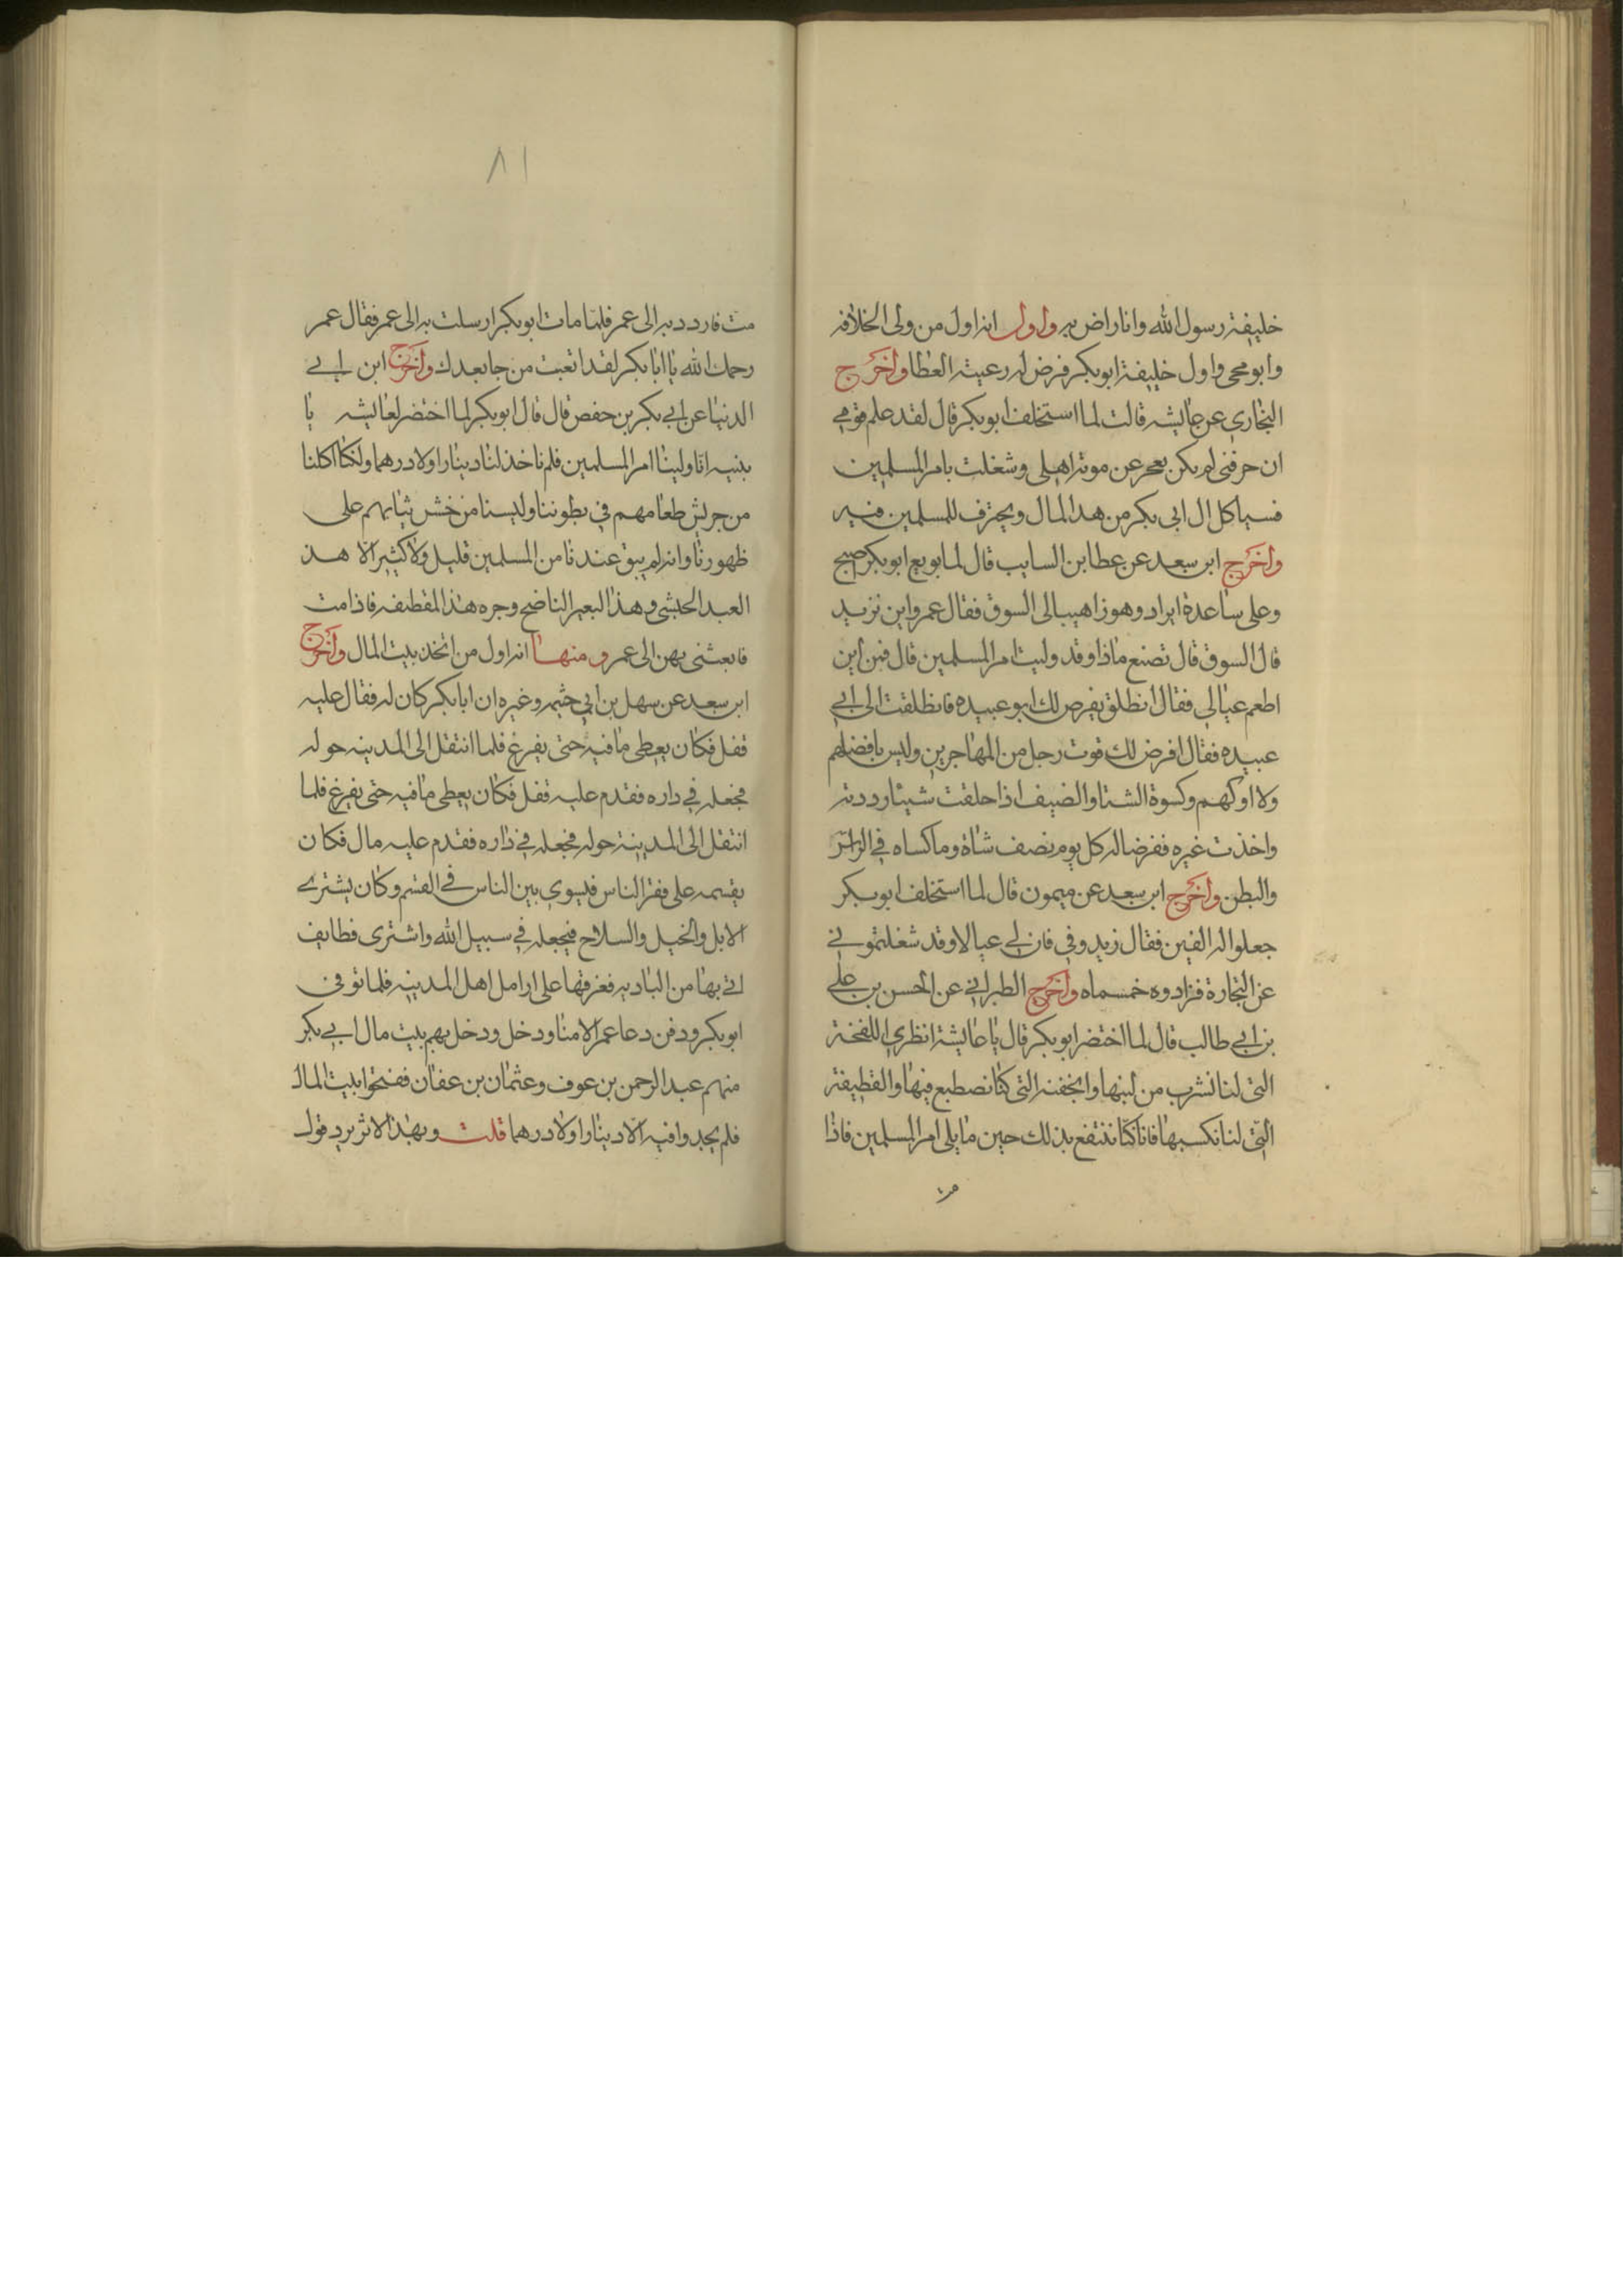 خليفة رسول الله وانا راض به واول انه اول من ولى الخلافه
وابوه حى واول خليفة ابوبكر فرض له رعيته العطا واخرج
البخاري عن عايشه قالت لما استخلف ابوبكر قال لقد علم قومي
ان حرفتى لم يكن تعجز عن موته اهلى وشغلت بامر المسلمين
فسياكل ال ابى بكر من هذا المال ويحترف للمسلمين فيه
واخرج ابن سعد عن عطا بن السايب قال لما بويع ابوبكر اصبح
وعلى ساعدة ابراد وهو ذاهب الى السوق فقال عمر واين تريد
قال السوق قال تصنع ماذا وقد وليت امر المسلمين قال فمن أين
اطعم عيالي فقال انطلق يفرض لك ابو عبيده فانطلقت الى ابي
عبيده فقال افرض لك قوت رجل من المهاجرين وليس بافضلهم
ولا اوكهم وكسوة الشتا والضيف اذا حلقت شيئا رددته
واخذت غيره ففرضا له كل يوم نصف شاة وما كساه في الراس
والبطن واخرج ابن سعد عن ميمون قال لما استخلف ابوبكر
جعلوا له الفين فقال زيدوني فان لي عيالا وقد شغلتموني
عن التجارة فزادوه خمسماه واخرج الطبراني عن الحسن بن علي
بن ابي طالب قال لما اختضر ابوبكر قال يا عايشة انظري اللفخة
التى لنا نشرب من لبنها والجفنه التى كنا نصطبع فيها والقطيفة
التى لنا نكسبها فانا كنا ننتفع بذلك حين ما يلى امر المسلمين فاذا
مت
٨١
مت فارددبه الى عمر فلما مات ابوبكر ارسلت به الى عمر فقال عمر
رحمك الله يا ابا بكر لقد اتعبت من جا بعدك واخرج ابن ابي
الدنيا عن ابي بكر بن حفص قال قال ابوبكر لما اختضر لعايشه يا
بنيه انا ولينا امر المسلمين فلم ناخذ لنا دينارا ولا درهما ولكنا اكلنا
من جريش طعامهم في بطوننا ولبسنا من خشن ثيابهم على
ظهورنا وانه لم يبق عندنا من المسلمين قليل ولا كثير الا هذ
العبد الحبشى وهذا البعير الناضح وجره هذا المقطيفه فاذامت
فابعثنى بهن الى عمر ومنها انه اول من اتخذ بيت المال واخرج
ابن سعد عن سهل بن ابي خثيمه وغيره ان ابا بكر كان له فقال عليه
قفل فكان يعطى ما فيه حتى يفرغ فلما انتقل الى المدينه حوله
فجعله في داره فقدم عليه قفل فكان يعطى ما فيه حتى يفرغ فلما
انتقل الى المدينة حوله فجعله في داره فقدم عليه مال فكان
يقسمه على فقرا الناس فيسوي بين الناس في القسم وكان يشتري
الابل والخيل والسلاح فيجعله في سبيل الله واشترى قطايف
اتي بها من الباديه ففرقها على ارامل اهل المدينه فلما توفى
ابوبكر ودفن دعا عمر الامنا ودخل ودخل بهم بيت مال ابي بكر
منهم عبد الرحمن بن عوف وعثمان بن عفان ففتحوا بيت المال
فلم يجدوا فيه الا دينارا ولا درهما قلت وبهذا الاثر يرد قول